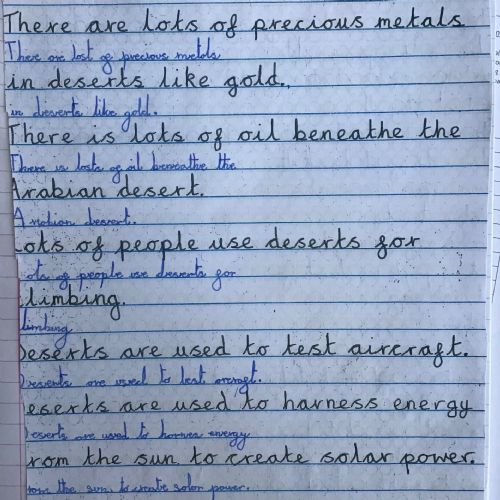 There are lots of precious metals
There are lost of precious metals
in deserts like gold.
in deserts like gold.
There is lots of oil beneathe the
There is lots of oil beneathe the
Arabian desert.
Arabian desert.
Lots of people use deserts for
Lots of people use deserts for
climbing.
climbing
Deserts are used to test aircraft.
Deserts are used to test aircraft.
Deserts are used to harness energy
Deserts are used to harness energy
from the sun to create solar power.
from the sun to create solar power.